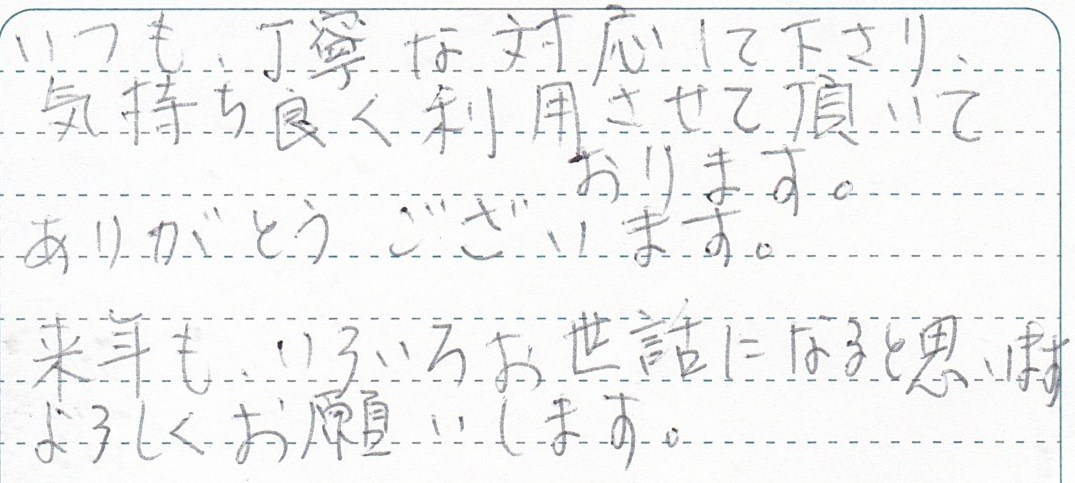 いつも、丁寧な対応して下さり、
気持ち良く利用させて頂いて
おります。
ありがとうございます。
来年も、いろいろお世話になると思います
よろしくお願いします。